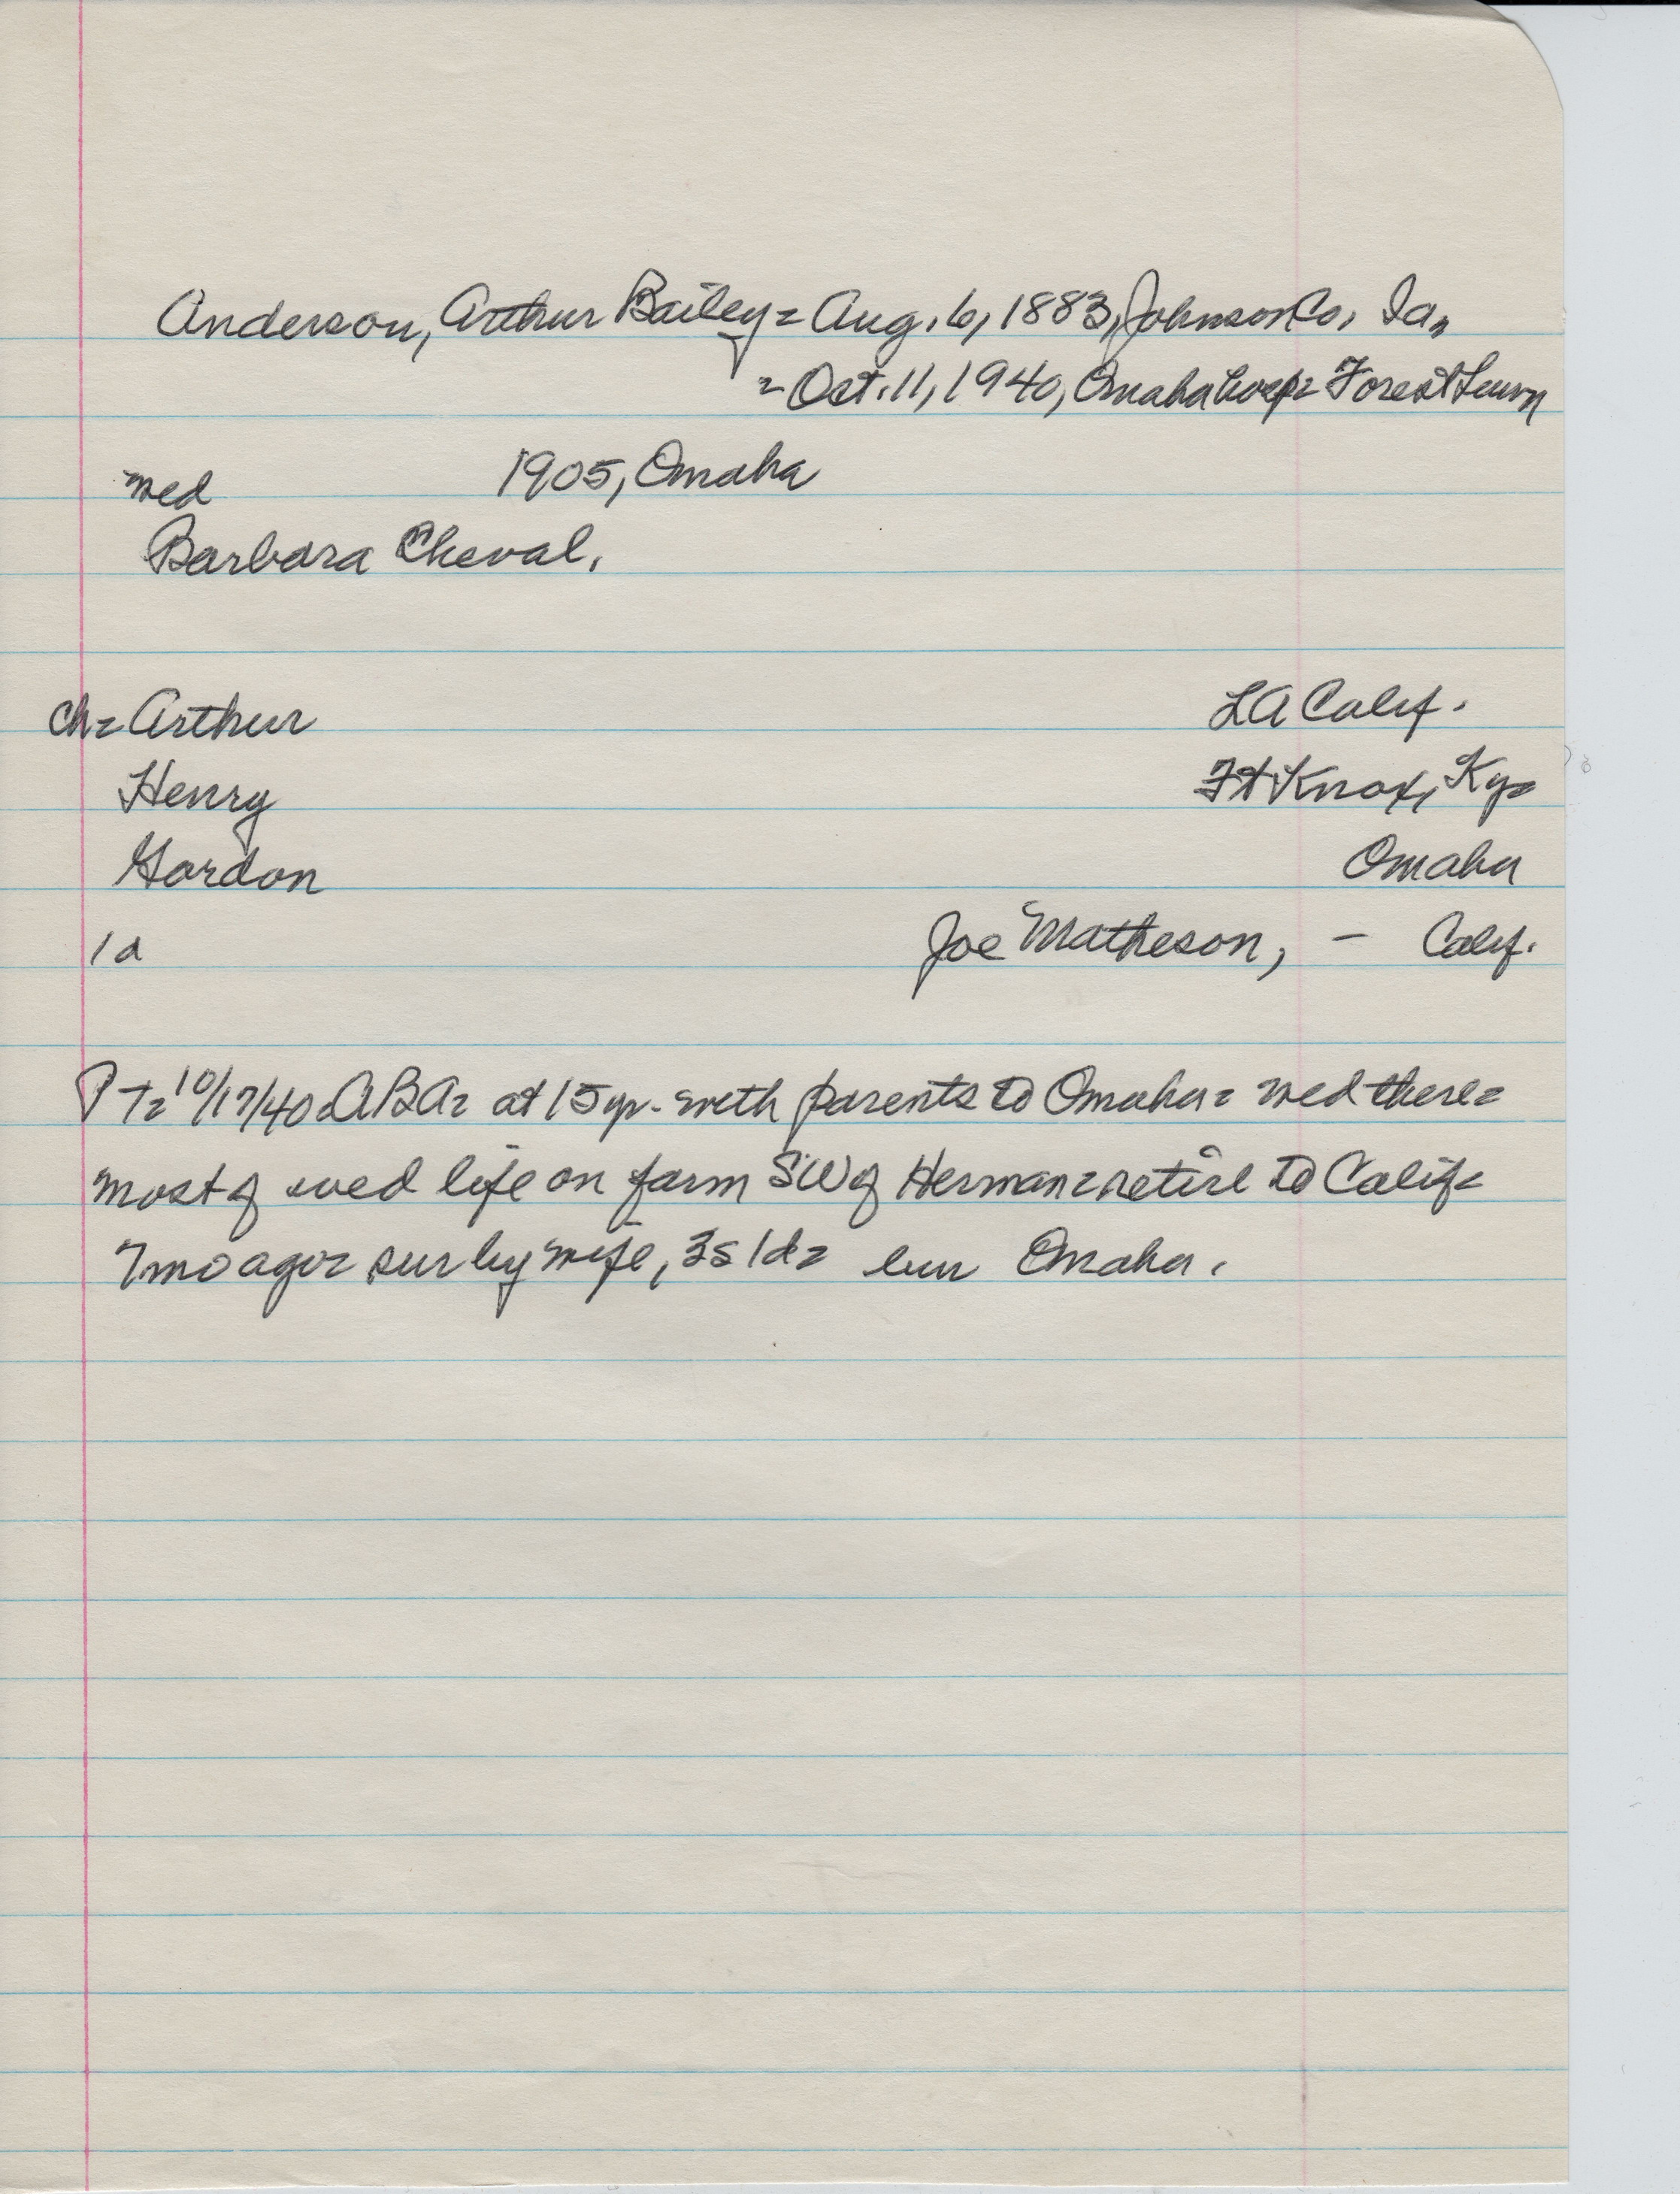 Anderson, Arthur Bailey = Aug. 6, 1883, Johnson Co, Ia,
= Oct. 11, 1940, Omaha hosp = Forest Lawn
wed 1905, Omaha
Barbara Cheval.
ch = Arthur LA Calif.
Henry Ft Knox, Ky =
Gordon Omaha
1 d Joe Matheson, – Calif.
PT = 10/17/40 = ABA = at 15 yr. with parents to Omaha = wed there =
most of wed life on farm SW of Herman = retire to Calif =
7 mo ago = sur by wife, 3s 1d = bur Omaha.